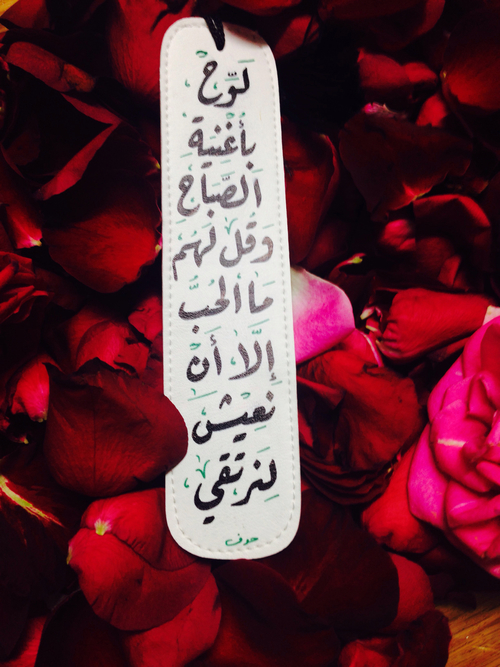 لَوِّحْ
بأُغْنِيَةِ
الصَّبَاحِ
وَقُل لَهُمْ
مَا الحُبُّ
إلَّا أَنْ
نَعِيشَ
لِنَرْتَقِي
حرف